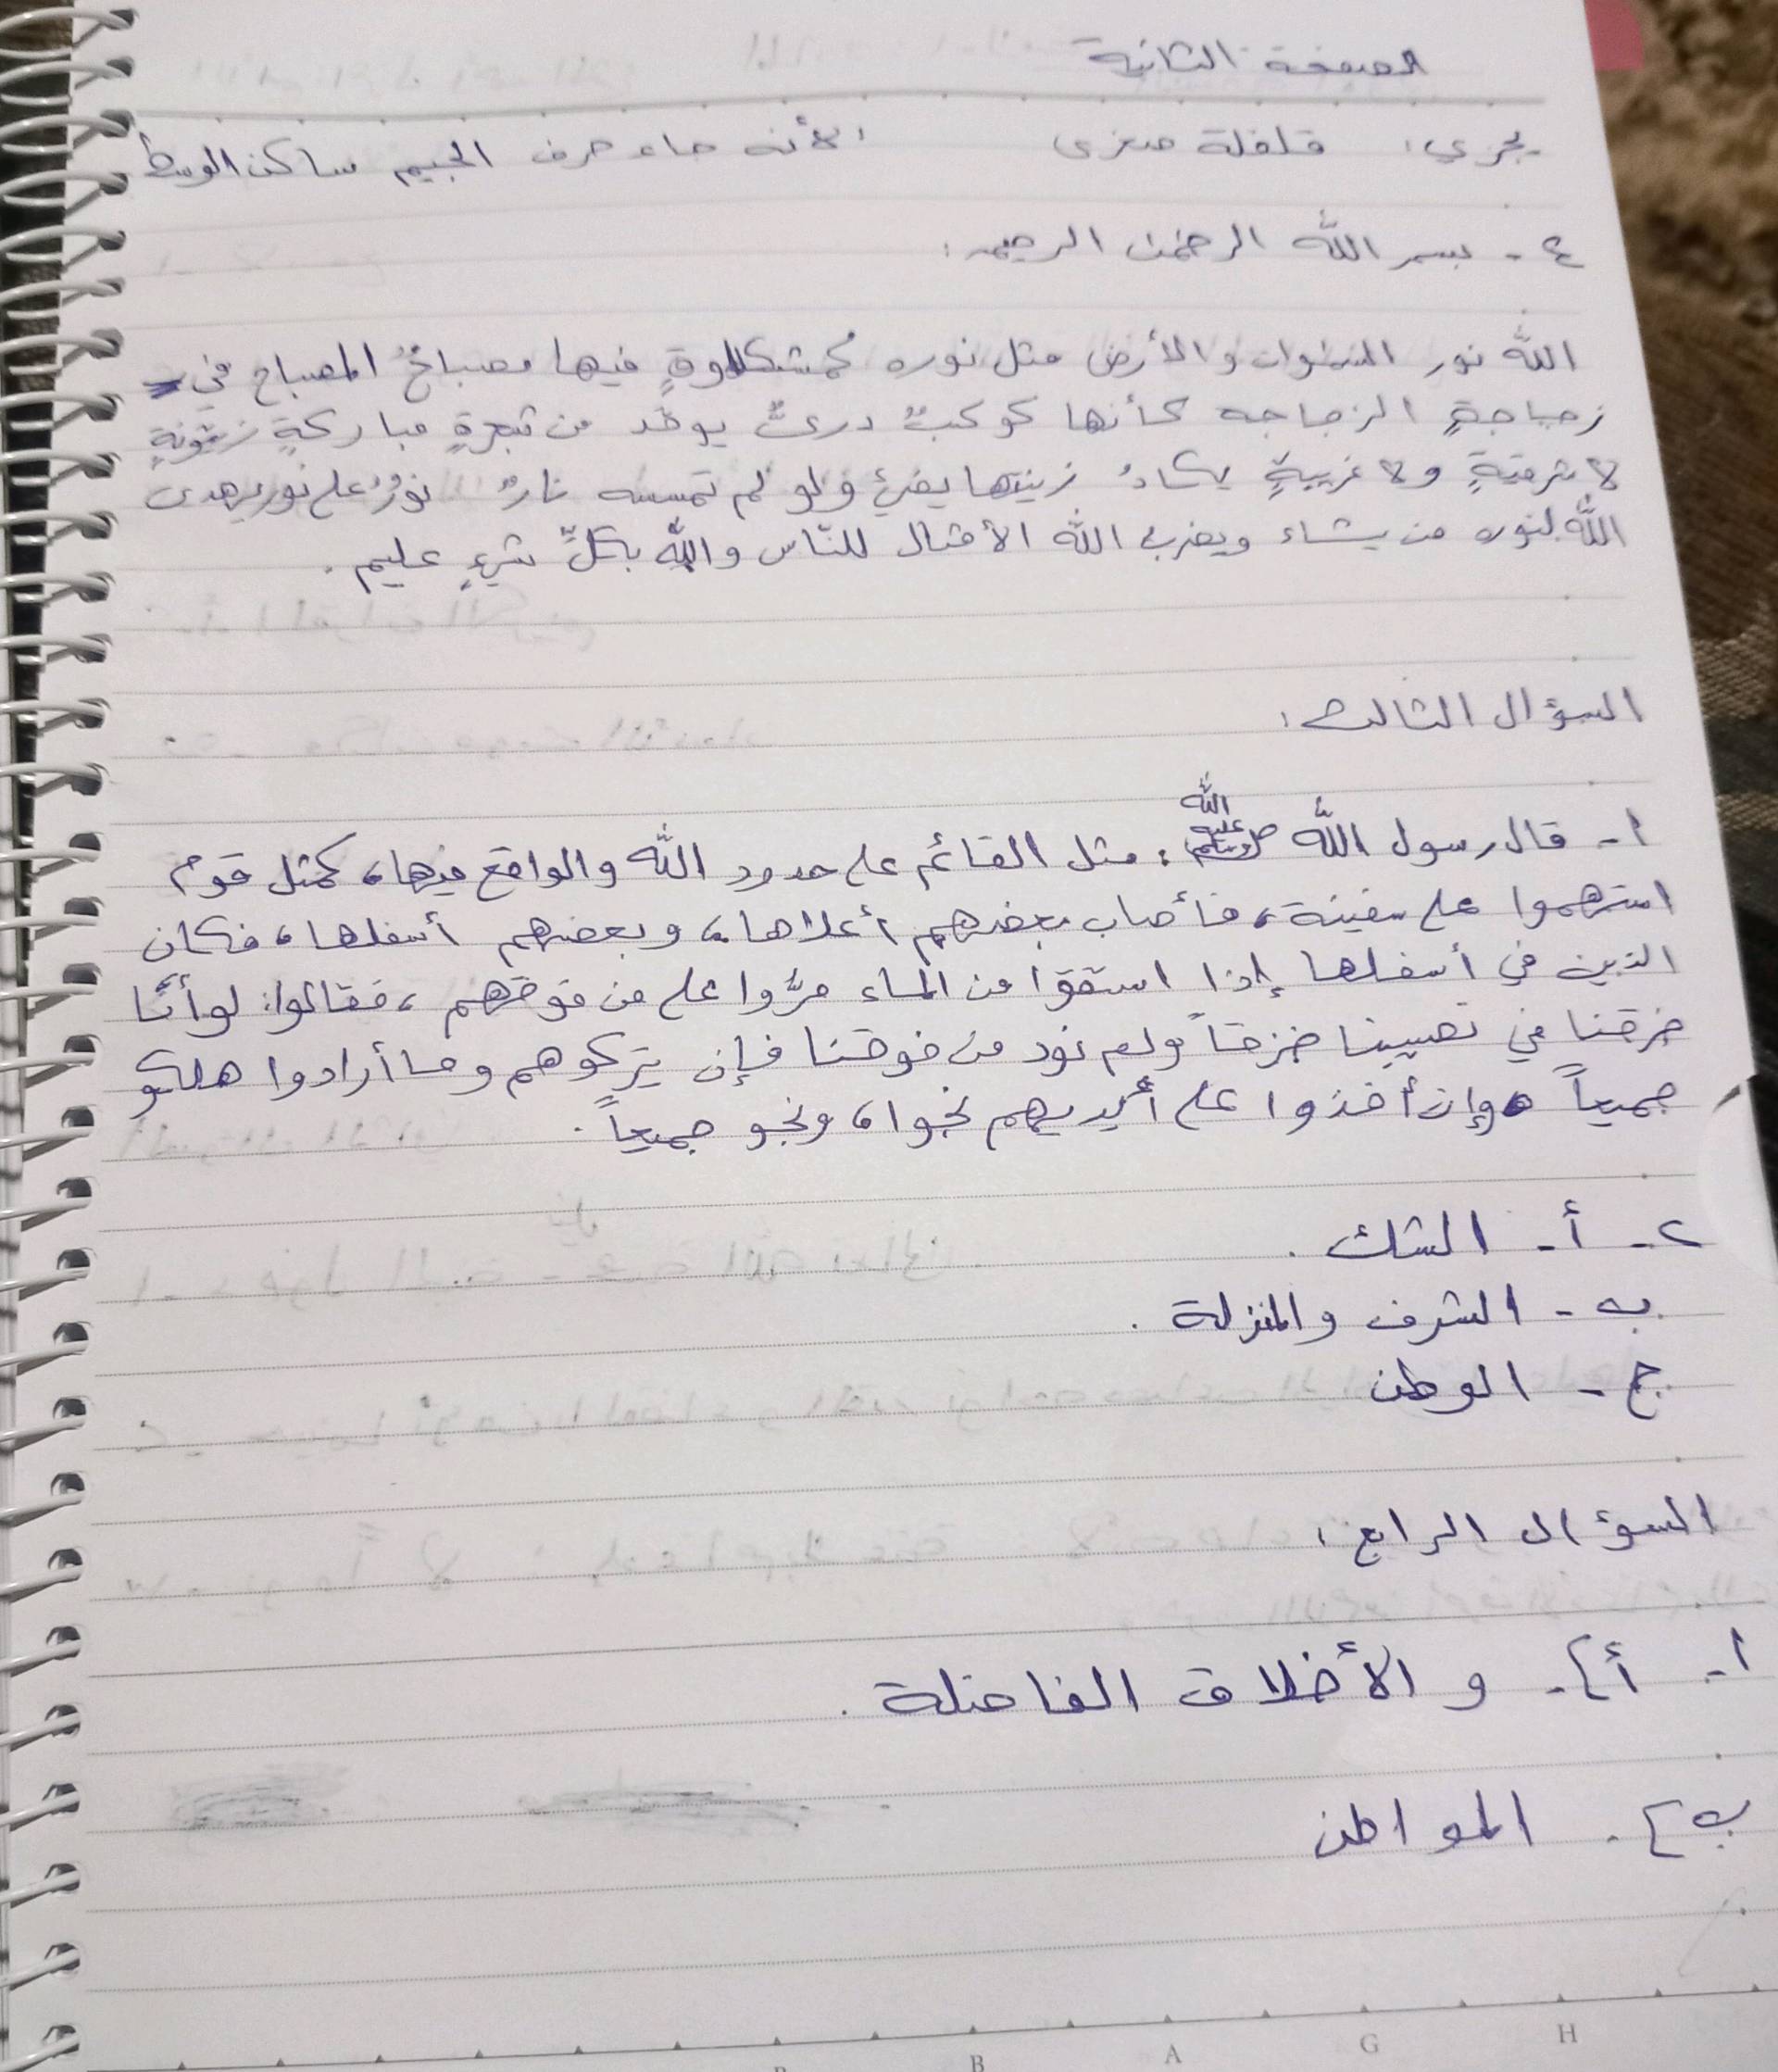 الصفحة الثانية
يجزي: قلقلة صغرى لأنه جاء حرف الجيم ساكن الوسط
٤ - بسم الله الرحمٰن الرحيم:
الله نور السمٰوات والأرض مثل نوره كمشكاوةٍ فيها مصباحٌ المصباح في
زجاجةٍ الزجاجه كأنها كوكبٌ دريٌّ يوقد من شجرةٍ مباركةٍ زيتونةٍ
لا شرقيةٍ ولا غربيةٍ يكادُ زيتها يضئ ولو لم تمسسه نارٌ نورٌ على نور يهدى
الله لنوره من يشاء ويضرب الله الأمثال للنّاس والله بكلِّ شيءٍ عليم .
السؤال الثالث:
١- قال رسول الله صلى الله عليه وسلم : مثل القائم على حدود الله والواقع فيها، كمثل قوم
استهموا على سفينة، فأصاب بعضهم أعلاها، وبعضهم أسفلها، فكان
الذين في أسفلها إذا استقوا من الماء مرّوا على من فوقهم ، فقالوا: لو أنّا
خرقنا في نصيبنا خرقاً ولم نود من فوقنا فإن يتركوهم وما أرادوا هلكو
جميعاً وإن أخذوا على أيديهم نجوا، ونجو جميعاً .
٢- أ- الشك .
ب - الشرف والمنزلة .
ج - الوطن
السؤال الرابع:
١- أ}. و الأخلاق الفاضلة .
ب}. المواطن
B A G H